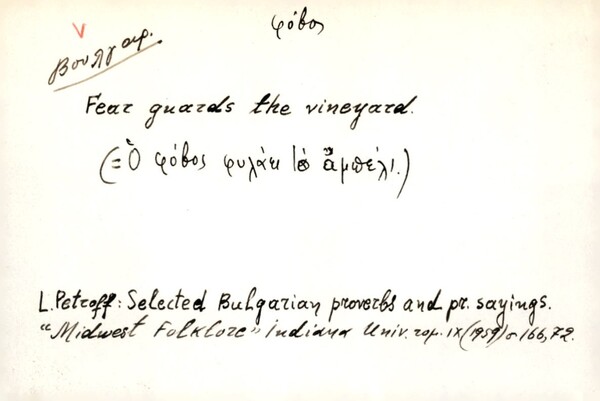 φόβος
V
Βουλγαρ.
Fear guards the vineyard.
(= Ὁ φόβος φυλάει τὸ ἀμπέλι.)
L. Petroff: Selected Bulgarian proverbs and pr. sayings.
"Midwest Folklore" Indiana Univ. τομ. IX (1959) σ 166, 72.